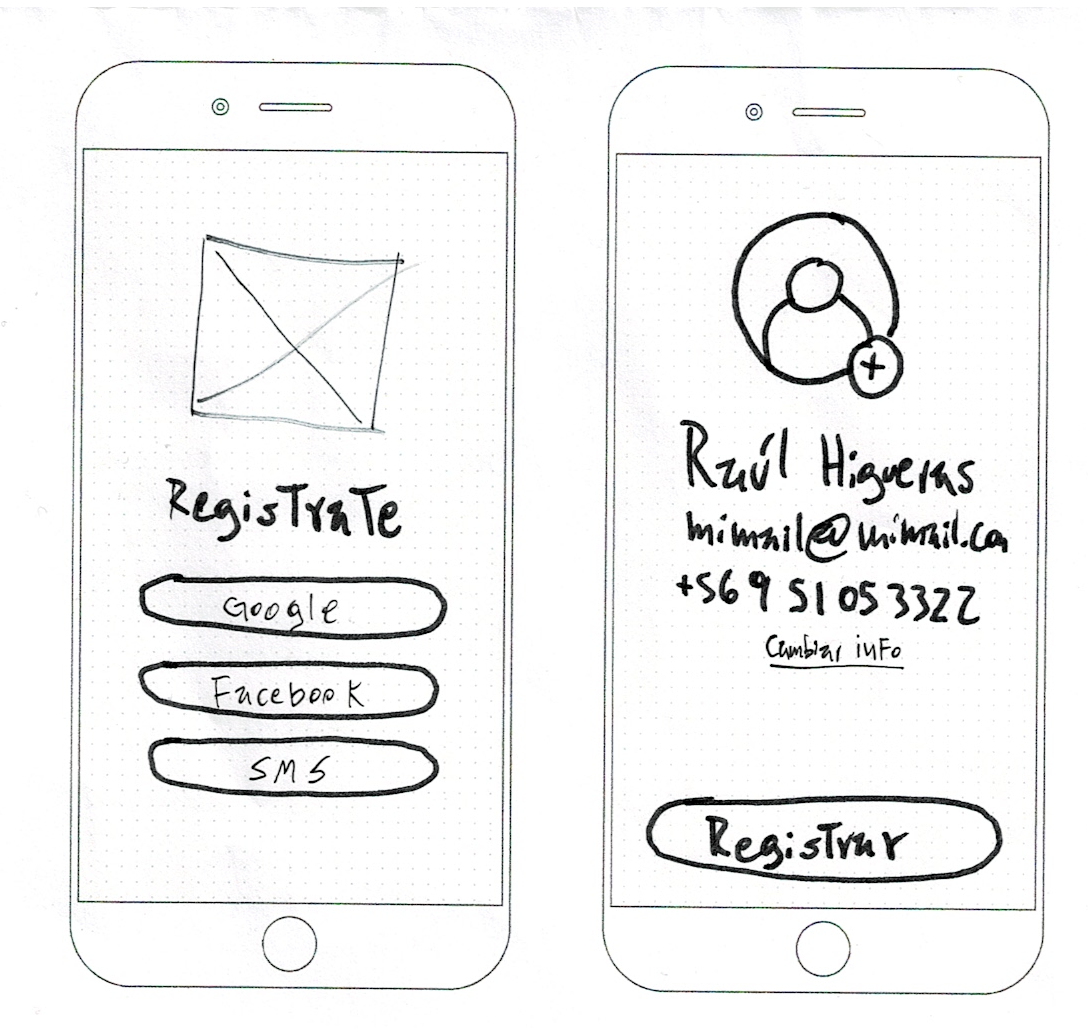 RegisTraTe
Google
Facebook
SMS
+
Raúl Higueras
mimail@mimail.com
+569 51053322
Cambiar inFo
RegisTrar